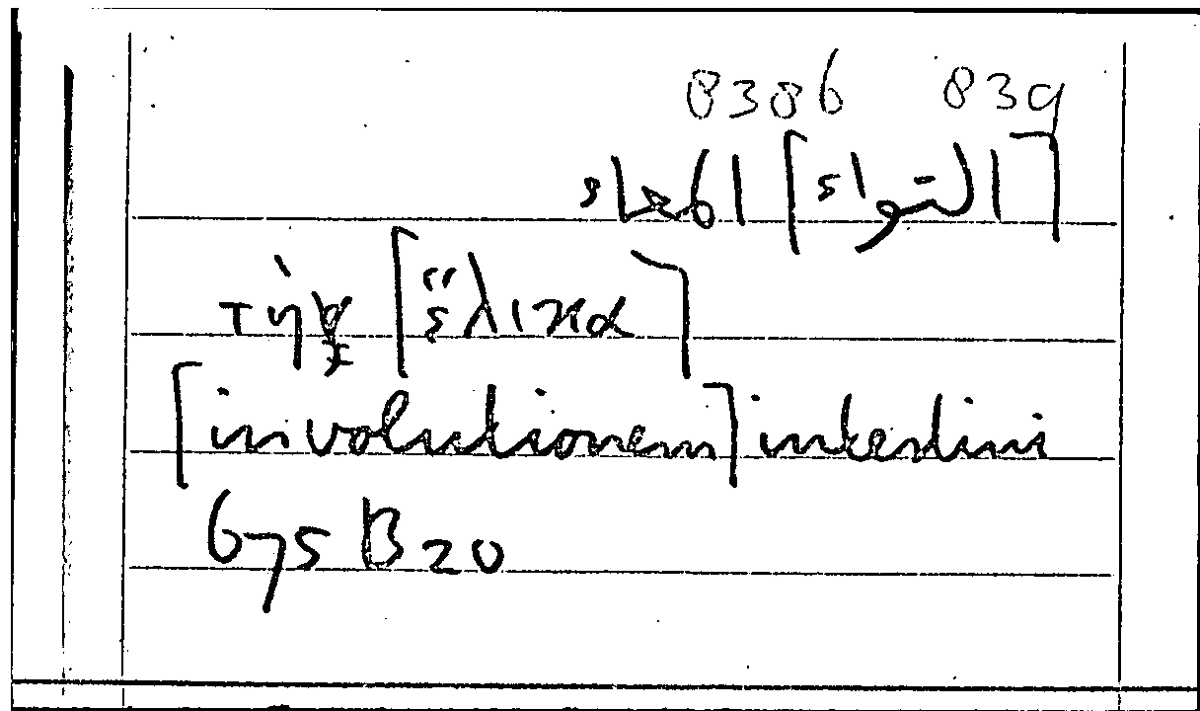 8386 839
[التواء] المعاء
τὴν [ἕλικα]
[involutionem] intestini
675 B 20